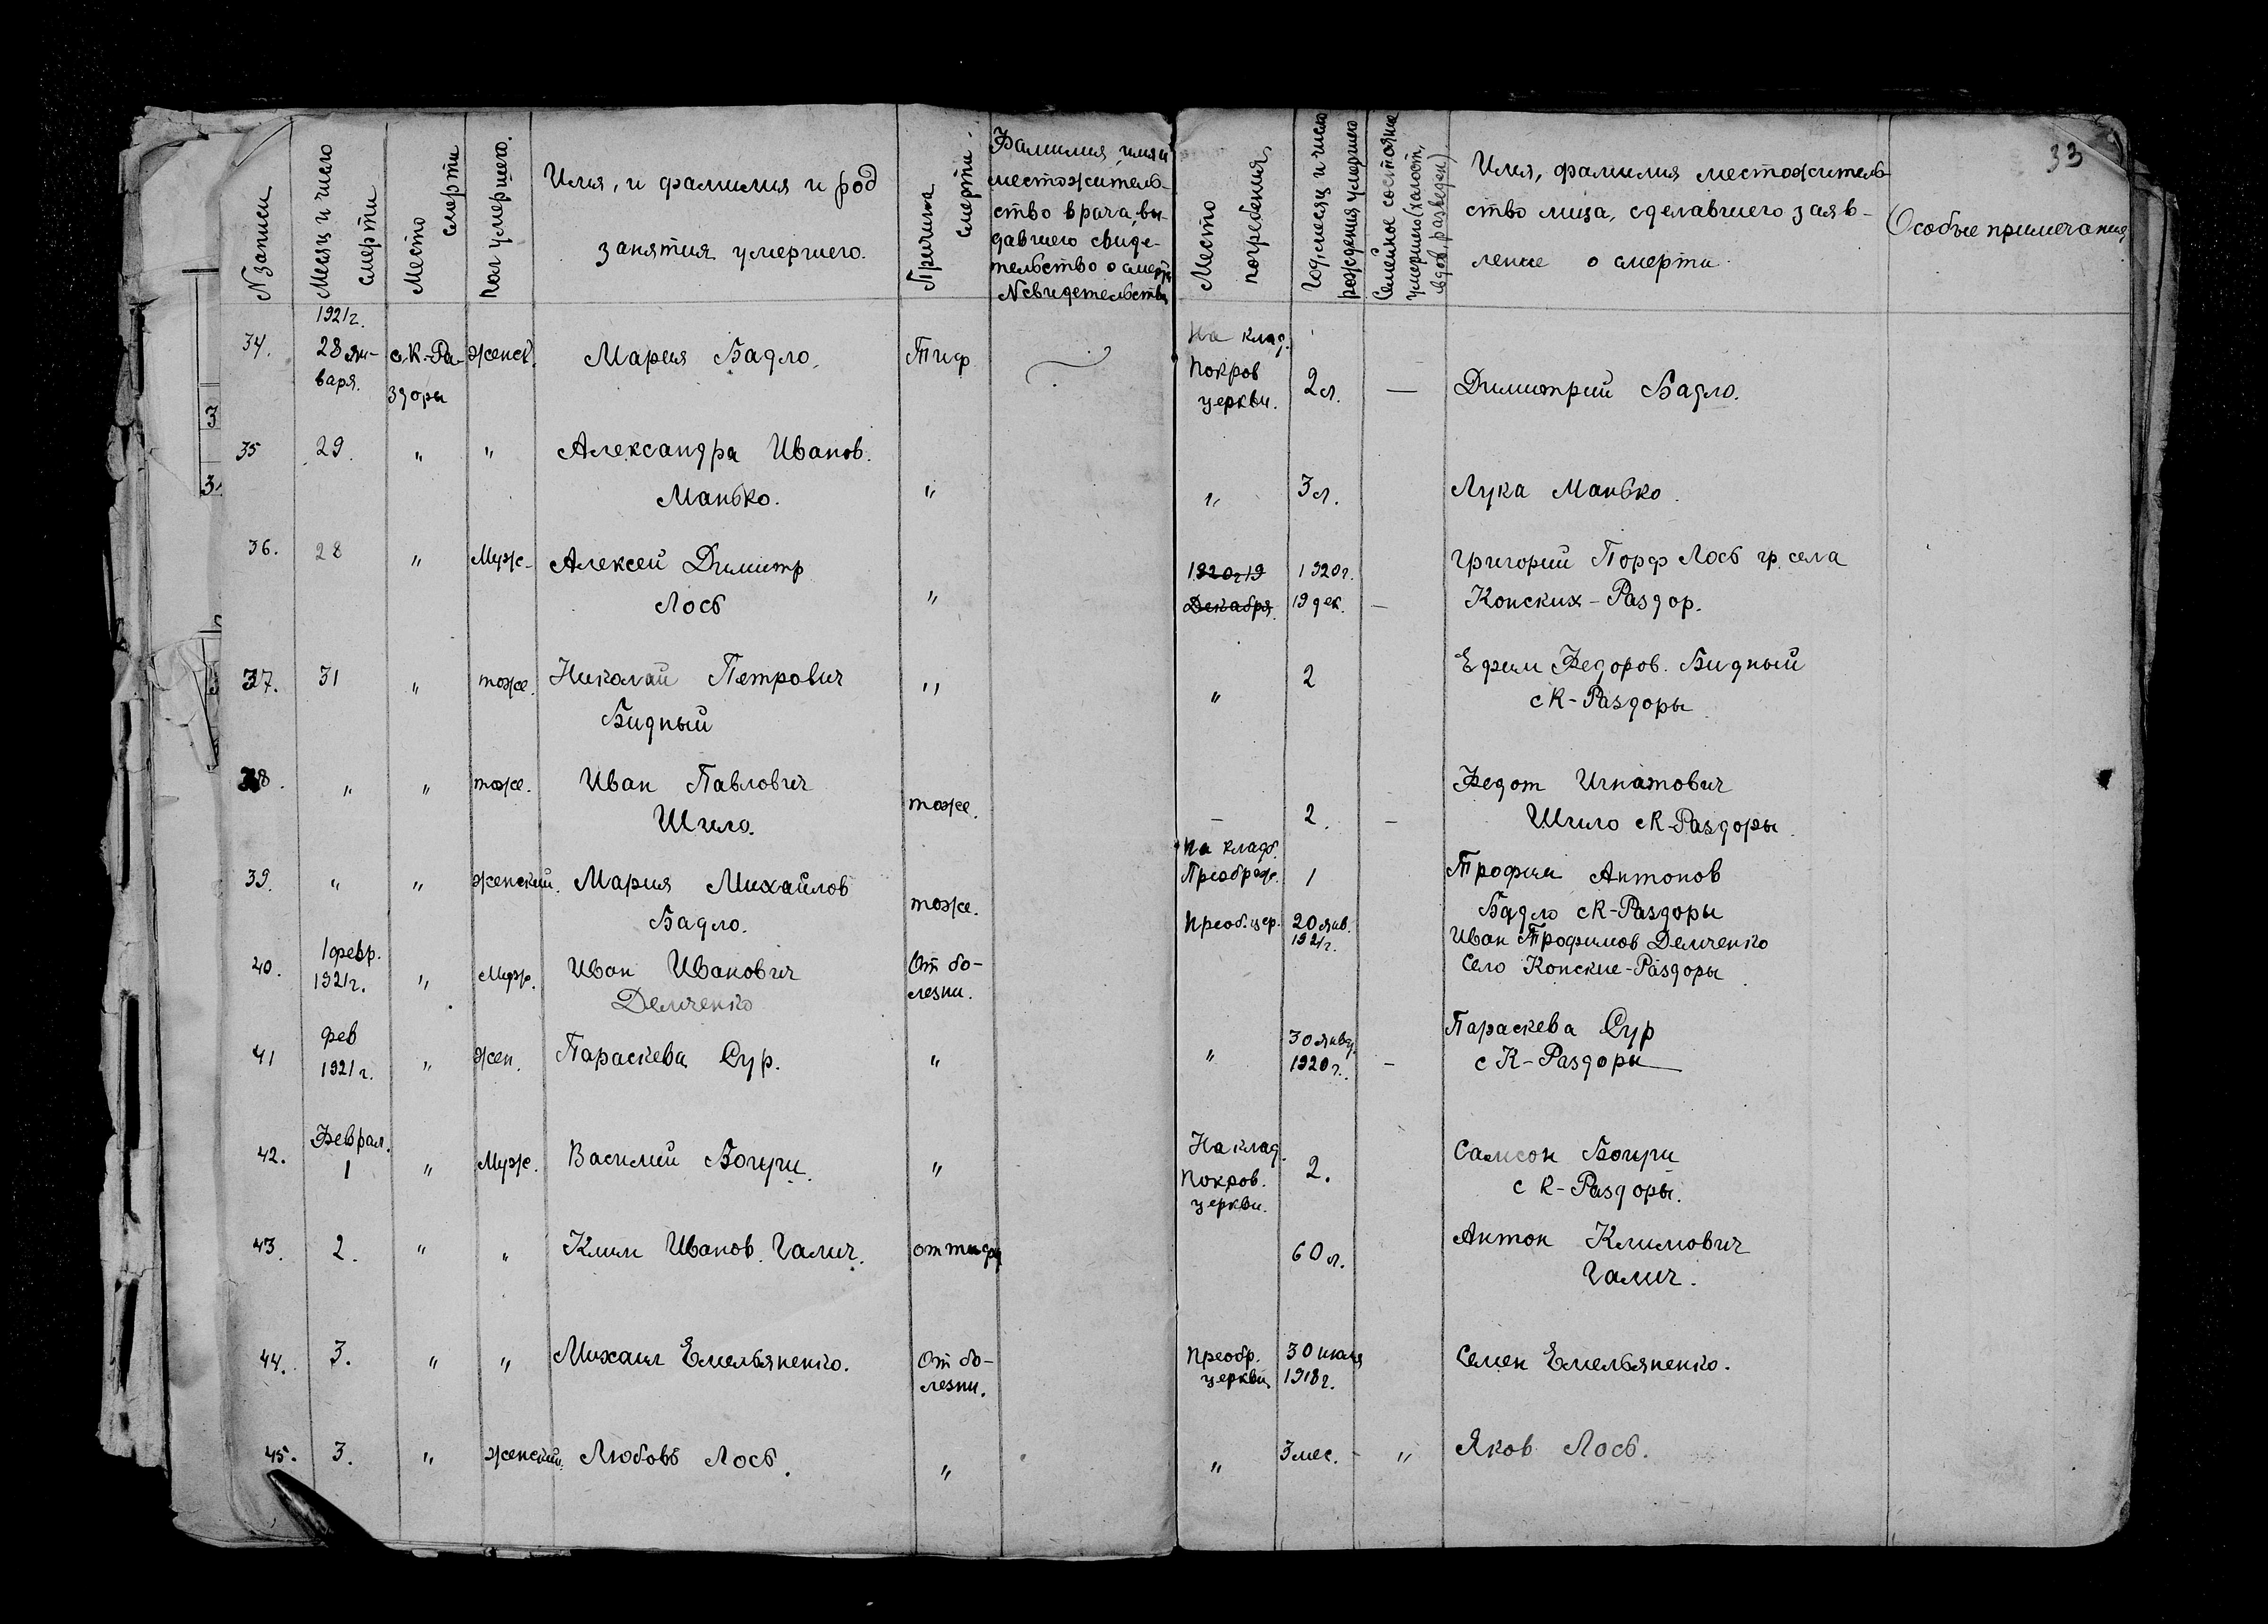 33
N записи
Месяц и число смерти
Место смерти
Пол умершего.
Имя, и фамилия и род
занятия умершего.
Причина смерти.
Фамилия, имя и
местожитель-
ство врача, вы-
давшего свиде-
тельство о смерти
N свидетельства
Место погребения,
Год, месяц и число рождения умершего
Семейное состояние умершего (холост, вдов, разведен)
Имя, фамилия местожитель-
ство лица, сделавшего заяв-
ление о смерти
Особые примечания
1921г.
34. 28 ян- с. К.-Ра- женск. Мария Бадло. Тиф На клад.
варя. здоры Покров 2 л. — Димитрий Бадло.
церкви.
35 29. " " Александра Иванов.
Манько. " " 3 л. Лука Манько.
36. 28 " Муж- Алексей Димитр 1920г 19 1920г. Григорий Порф Лось гр. села
Лось " Декабря. 19 дек. — Конских-Раздор.
37. 31 " тоже. Николай Петрович " 2 Ефим Федоров. Бидный
Бидный " с К-Раздоры
38. " " тоже. Иван Павлович Федот Игнатович
Шило. тоже. — 2. — Шило с К-Раздоры.
На кладб.
39. " " женский. Мария Михайлов Преображ. 1 Трофим Антонов
Бадло. тоже. Бадло с К-Раздоры
1 февр. Преоб. цер. 20 янв. Иван Трофимов Демченко
40. 1921г. " Муж. Иван Иванович От бо- 1921г. Село Конские-Раздоры
Демченко лезни.
фев 30 янва. Параскева Сур
41 1921г. " жен. Параскева Сур. " " 1920г. — с К-Раздоры
Феврал. На клад.
42. 1 " Муж. Василий Боцун. " Покров. 2. Самсон Боцун
церкви. с К-Раздоры.
43. 2. " " Клим Иванов. Галич. от тифа 60 л. Антон Климович
Галич.
44. 3. " " Михаил Емельяненко. От бо- Преобр. 30 июля Семен Емельяненко.
лезни. церкви 1918г.
45. 3. " женский. Любовь Лось. " " 3 мес. - " Яков Лось.